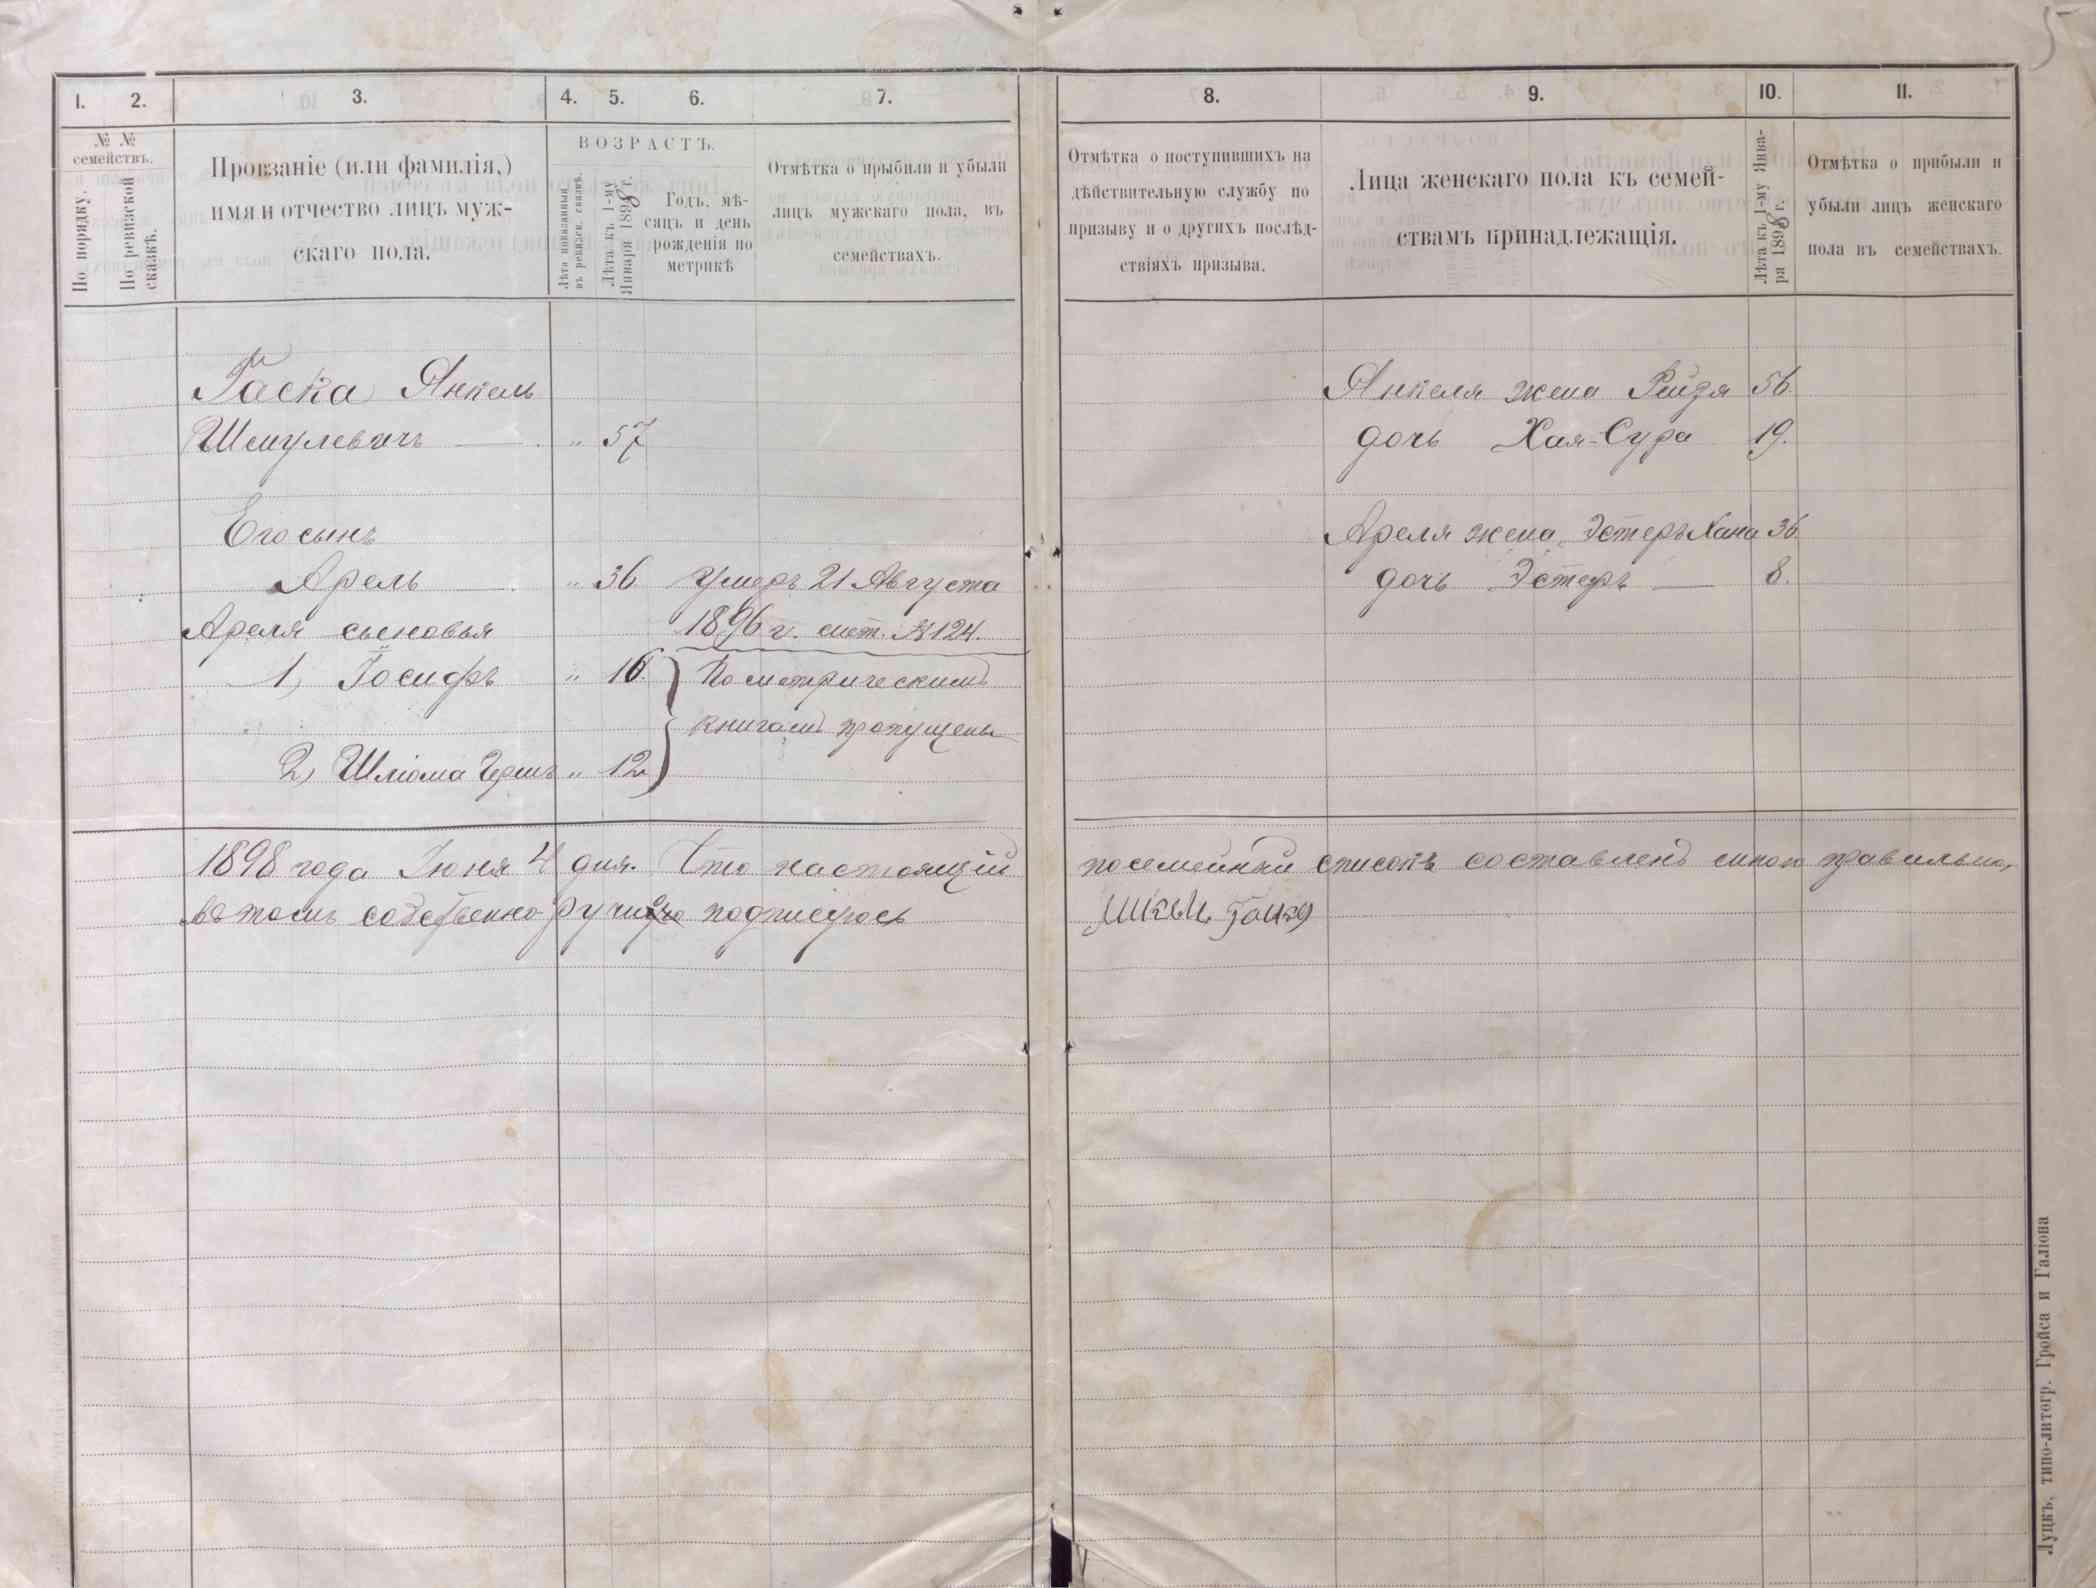 5
1. 2. 3. 4. 5. 6. 7. 8. 9. 10. 11.
№ №
семействъ.
По порядку.
По ревизской
сказкѣ.
Прозваніе (или фамилія,)
имя и отчество лицъ муж-
скаго пола.
ВОЗРАСТЪ.
Лѣта показанныя
въ ревизск. сказкѣ.
Лѣта къ 1-му
Января 1898 г.
Годъ, мѣ-
сяцъ и день
рожденія по
метрикѣ
Отмѣтка о прыбыли и убыли
лицъ мужскаго пола, въ
семействахъ.
Отмѣтка о поступившихъ на
дѣйствительную службу по
призыву и о другихъ послѣд-
ствіяхъ призыва.
Лица женскаго пола къ семей-
ствамъ принадлежащія.
Лѣта къ 1-му Янва-
ря 1898 г.
Отмѣтка о прибыли и
убыли лицъ женскаго
пола въ семействахъ.
Гаска Янкель
Шмулевичъ — „ 57
Его сынъ
Арель — „ 36 Умеръ 21 Августа
1896 г. мет. № 124.
Ареля сыновья
1) Іосифъ „ 16. По метрическимъ
книгамъ пропущены
2) Шліома Гершъ „ 12
Янкеля жена Рейзя 56.
дочь Хая-Сура 19.
Ареля жена Эстеръ Хана 36.
дочь Эстеръ — 8.
1898 года Іюня 4 дня. Что настоящій посемейный списокъ составленъ мною правильно,
въ томъ собственно ручно подписуюсь
Луцкъ, типо-литогр. Гройса и Галіона